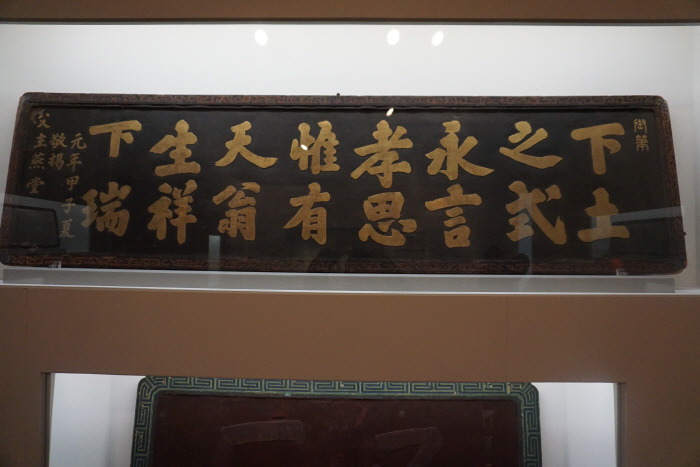 御筆
下土
之式
永言
孝思
惟有
天翁
生祥
下瑞
元年甲子夏
敬揭
主燕堂